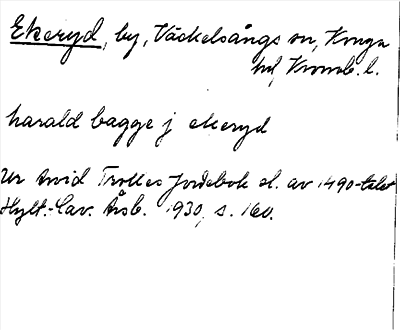 Ekeryd, by, Väckelsångs sn, Konga
hd, Kronob. l.
harald bagge j ekeryd
Ur Arvid Trolles Jordebok sl. av 1490-talet
Hylt.-Cav. Årsb. 1930, s. 160.